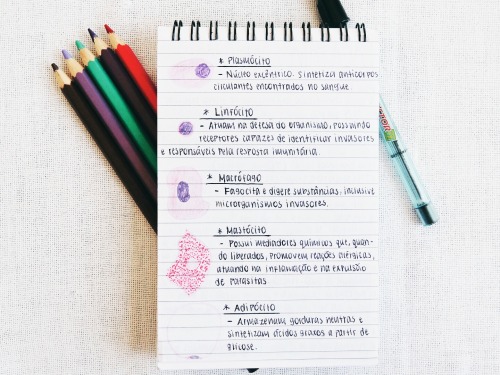 * Plasmócito
- Núcleo excêntrico. Sintetiza anticorpos
circulantes encontrados no sangue
* Linfócito
- Atuam na defesa do organismo, possuindo
receptores capazes de identificar invasores
e responsáveis pela resposta imunitária.
* Macrófago
- Fagocita e digere substâncias, inclusive
microrganismos invasores.
* Mastócito
- Possui mediadores químicos que, quan-
do liberados, promovem reações alérgicas,
atuando na inflamação e na expulsão
de parasitas.
* Adipócito
- Armazenam gorduras neutras e
sintetizam ácidos graxos a partir de
glicose.